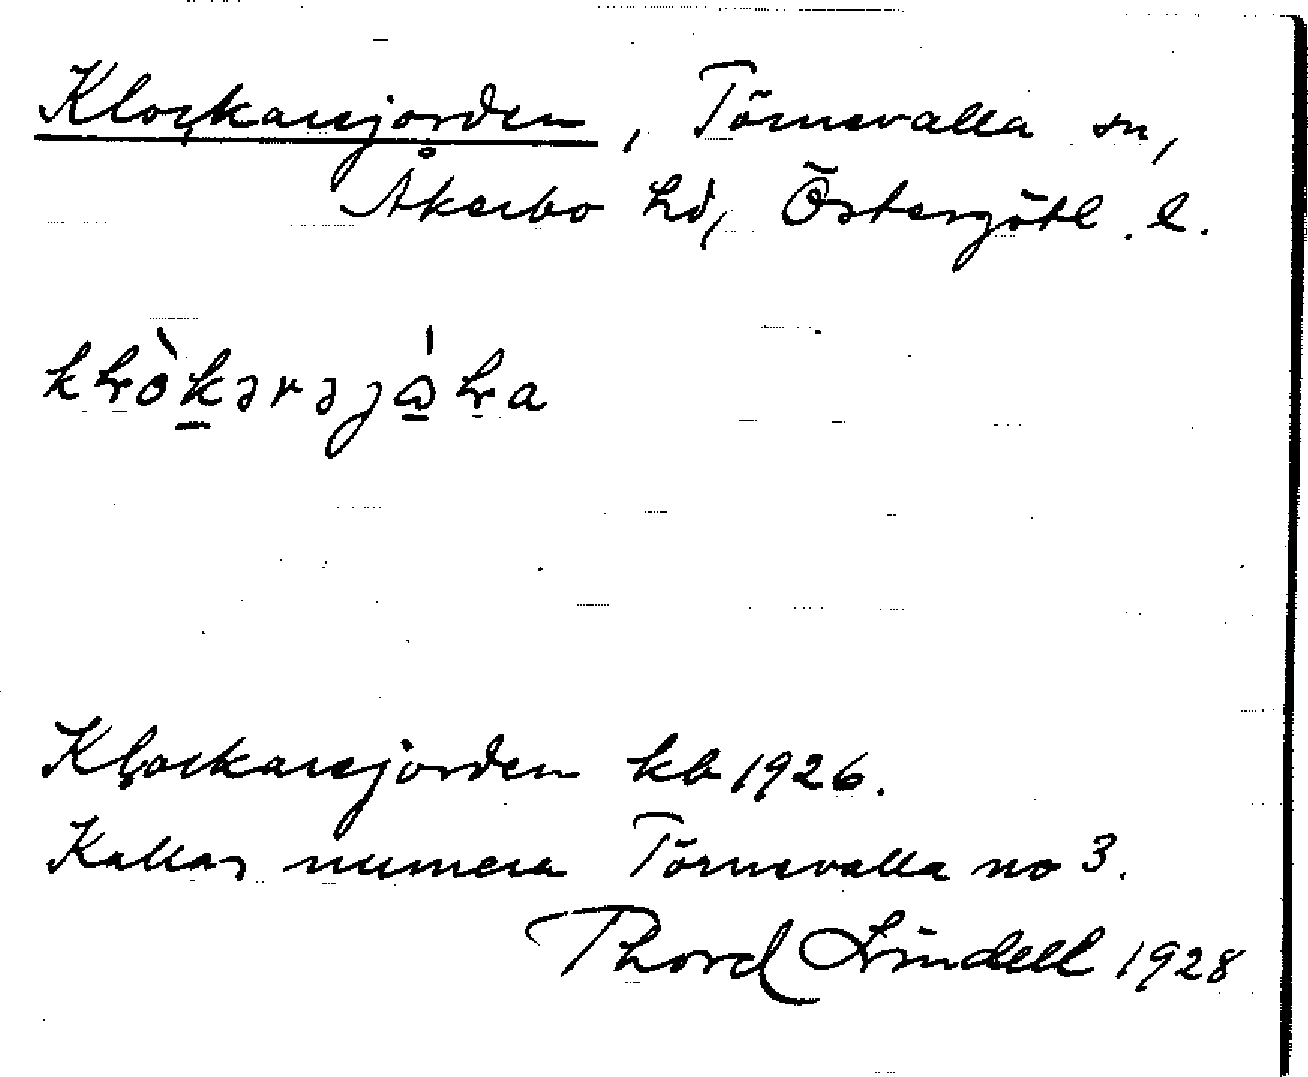 Klockarejorden, Törnevalla sn,
Åkerbo hd, Östergötl. l.
Klockarejorden kb 1926.
Kallas numera Törnevalla no 3.
Thord Lindell 1928